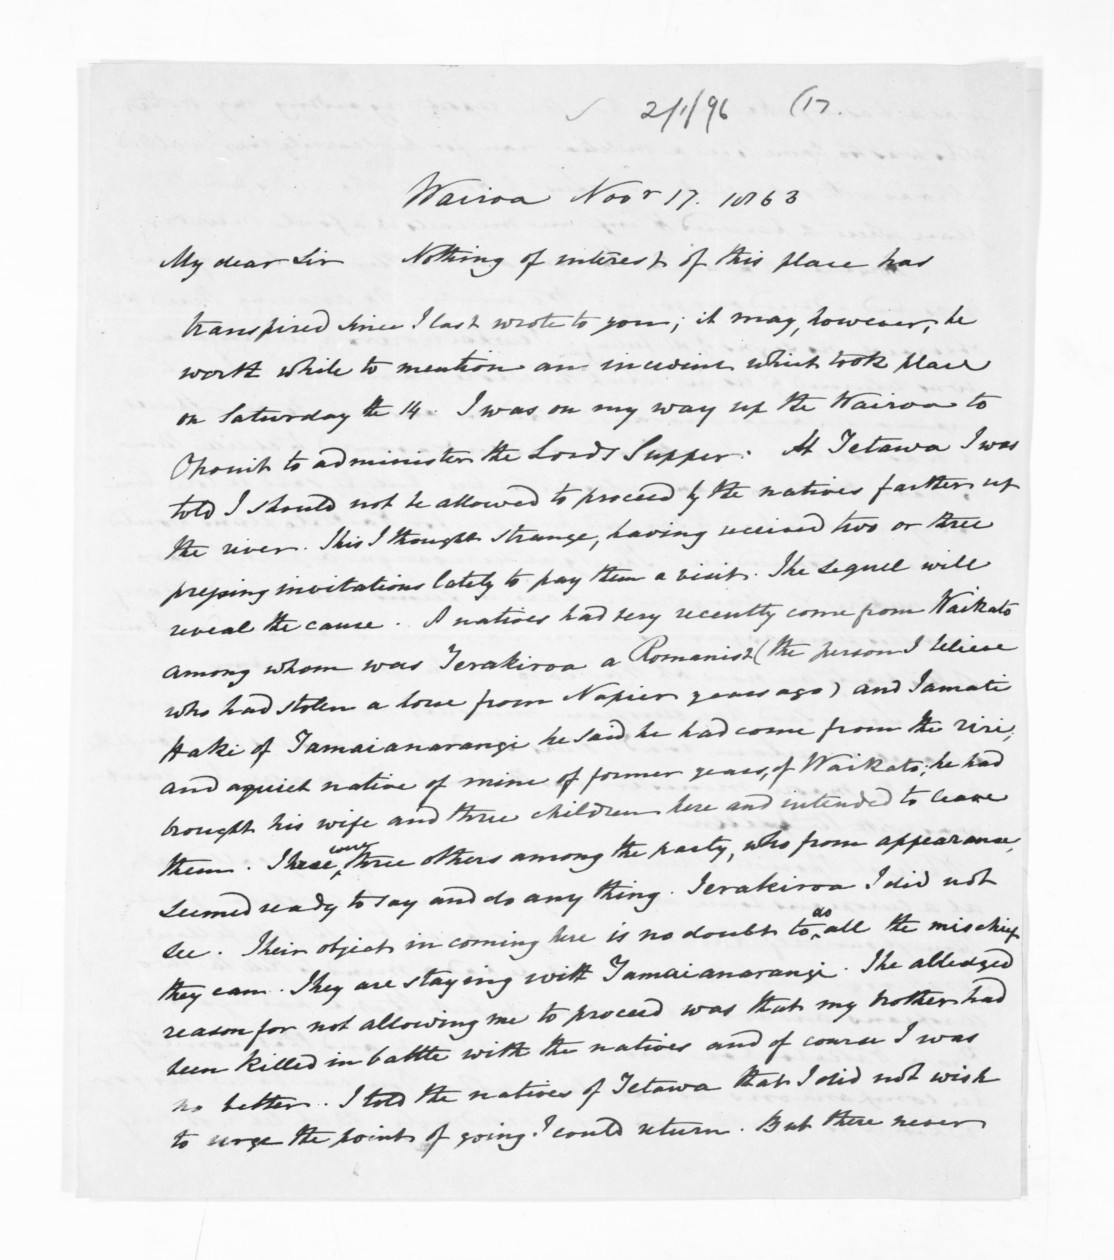 2/1/96 (17.
Wairoa Novr 17. 1863
My dear Sir Nothing of interest of this place has
transpired since I last wrote to you; it may, however, be
worth while to mention an incident which took place
on Saturday the 14. I was on my way up the Wairoa to
Opouit to administer the Lord's Supper. At Tetawa I was
told I should not be allowed to proceed by the natives farther up
the river. This I thought strange, having received two or three
pressing invitations lately to pay them a visit. The sequel will
reveal the cause. natives had very recently come from Waikato
among whom was Terakiroa a Romanist (the person I believe
who had stolen a horse from Napier years ago) and Tamati
Hake of Tamaianarangi he said he had come from the
and a quiet native of mine of former years, of Waikato; he had
brought his wife and three children here and intended to leave
them. were three others among the party, who from appearance,
seemed ready to say and do any thing. Terakiroa I did not
see. Their object in coming here is no doubt to do all the mischief
they can. They are staying with Tamaianarangi. The alledged
reason for not allowing me to proceed was that my brother had
been killed in battle with the natives and of course I was
no better. I told the natives of Tetawa that I did not wish
to urge the point of going I could return. But there never